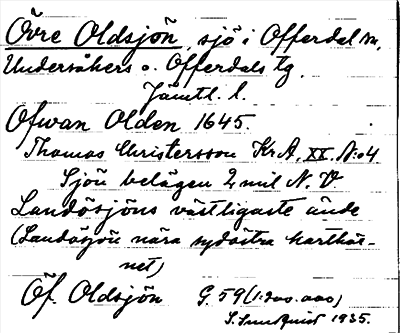 Övre Oldsjön, sjö i Offerdal m.
Undersåkers o. Offerdals tg.
Jämtl. l.
Ofwan Olden 1645.
Thomas Christersson Kr.A. XX. N:o4
Sjön belägen 2 mil N. V
Landösjöns västligaste ände
(Landösjön nära sydöstra karthör-
net)
Öf. Oldsjön G. 59 (1:200.000)
S. Sundquist 1935.